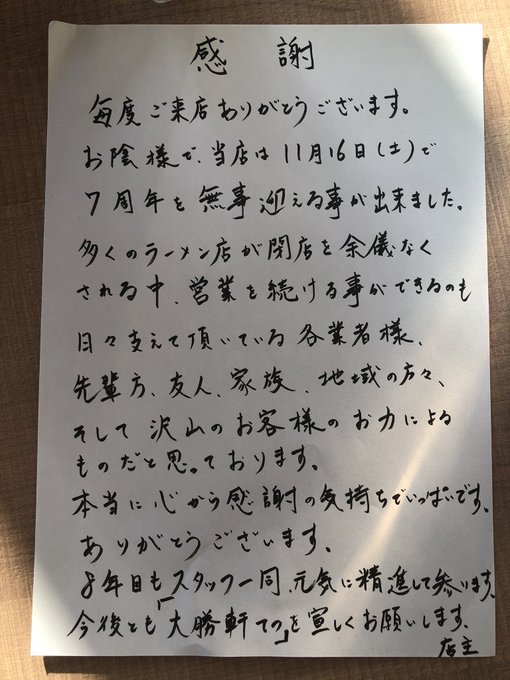 感謝
毎度ご来店ありがとうございます。
お陰様で、当店は11月16日(土)で
7周年を無事迎える事が出来ました。
多くのラーメン店が閉店を余儀なく
される中、営業を続ける事ができるのも
日々支えて頂いている各業者様、
先輩方、友人、家族、地域の方々、
そして沢山のお客様のお力による
ものだと思っております。
本当に心から感謝の気持ちでいっぱいです。
ありがとうございます。
8年目もスタッフ一同、元気に精進して参ります。
今後とも「大勝軒てつ」を宜しくお願いします。
店主